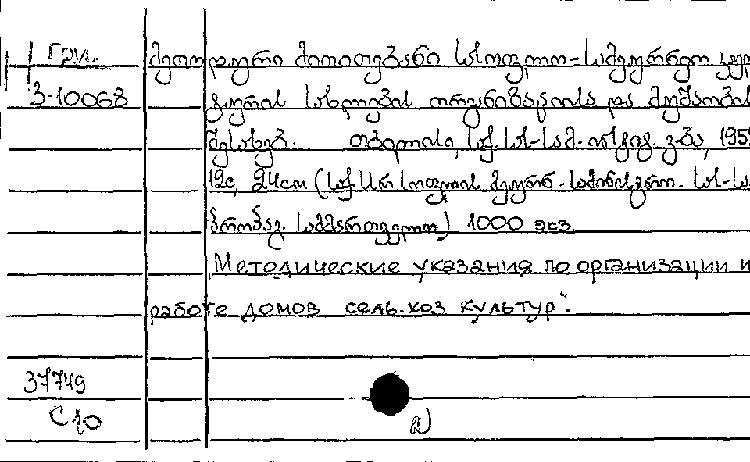 Груз. მეთოდური მითითებანი სასოფლო-სამეურნეო კულ
3-10068 ტურის სახლების ორგანიზაციისა და მუშაობის
შესახებ. თბილისი, საქ. სს-სამ. 195
12с, 24см (საქ. სსრ სოფლის მეურნ. სამინისტრო. სს-სა
პროპაგ. სამმართველო) 1000 экз
Методические указания по организации и
работе домов сель-хоз культур".
37749
С10